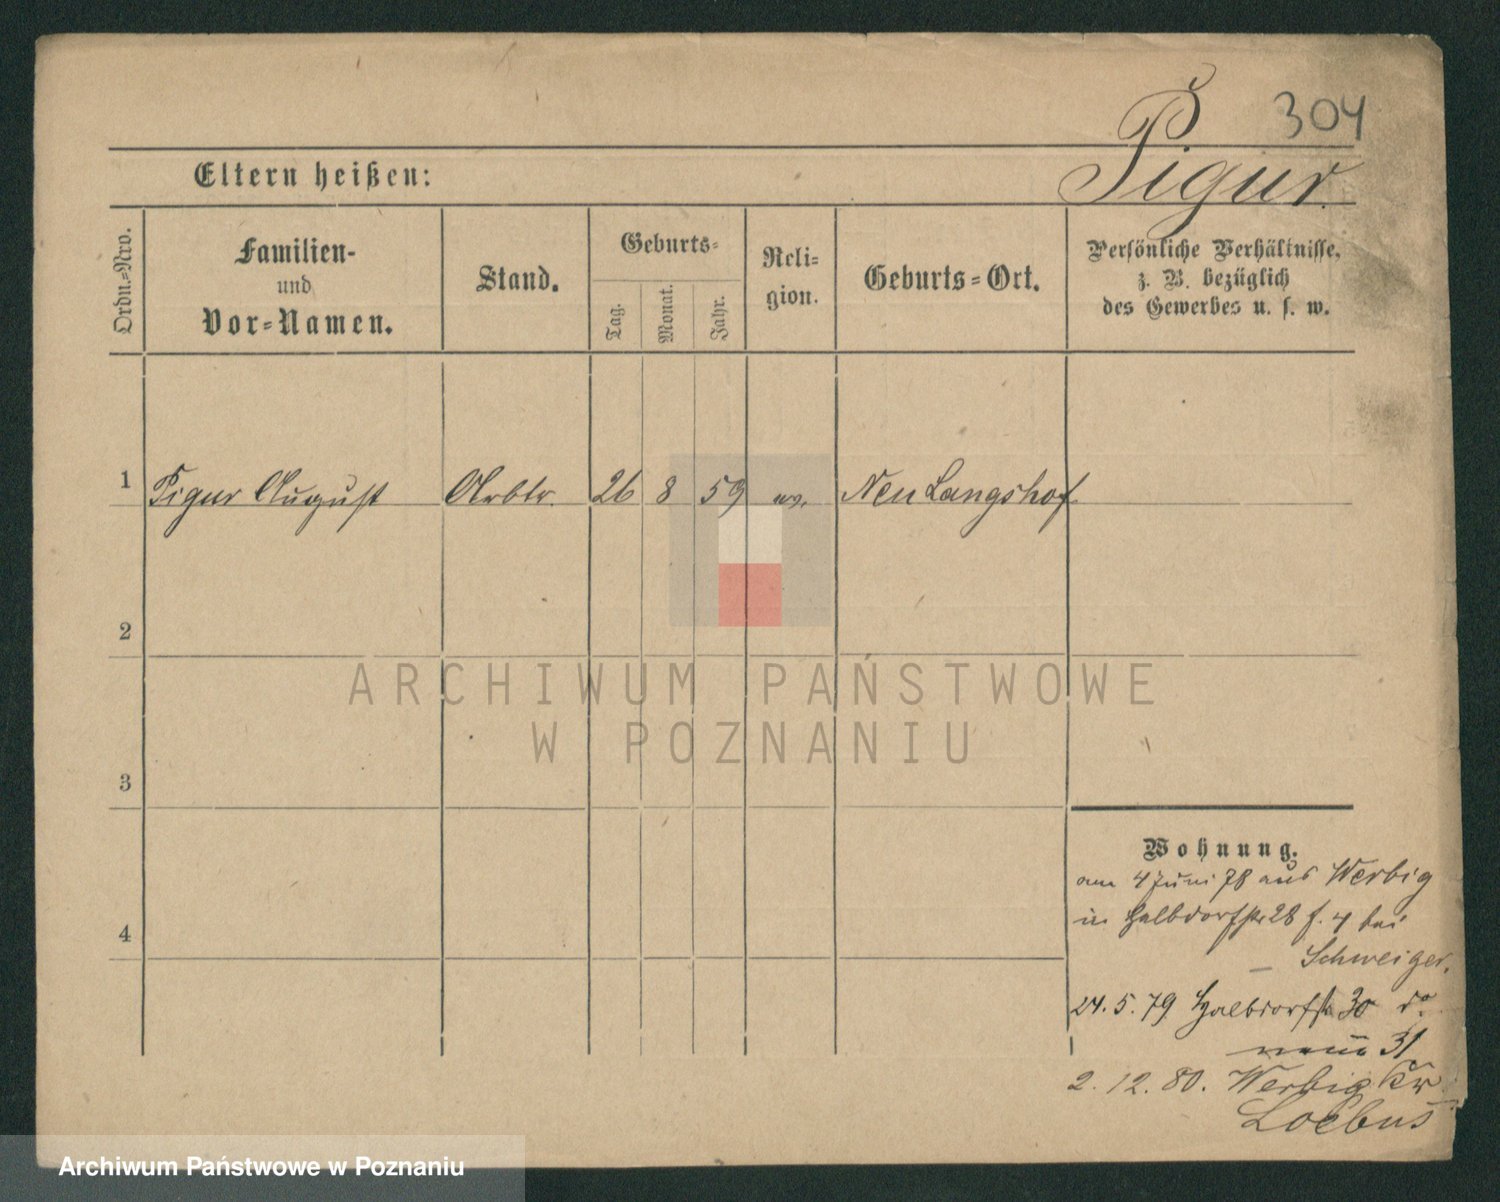 304
Pigur.
Eltern heißen:
Ordn.-Nro.
Familien-
und
Vor-Namen.
Stand.
Geburts-
Tag.
Monat.
Jahr.
Reli-
gion.
Geburts-Ort.
Persönliche Verhältnisse,
z. B. bezüglich
des Gewerbes u. s. w.
1 Pigur August Arbtr. 26 8 59 ev. Neu Langshof.
2
3
4
ARCHIWUM PAŃSTWOWE
W POZNANIU
Wohnung.
am 4 Juni 78 aus Werbig
in Halbdorfstr 28 f. 4 bei
Schweiger.
24.5.79 Halbdorfstr 30 do
31
2.12.80. Werbig Kr
Loebus
Archiwum Państwowe w Poznaniu